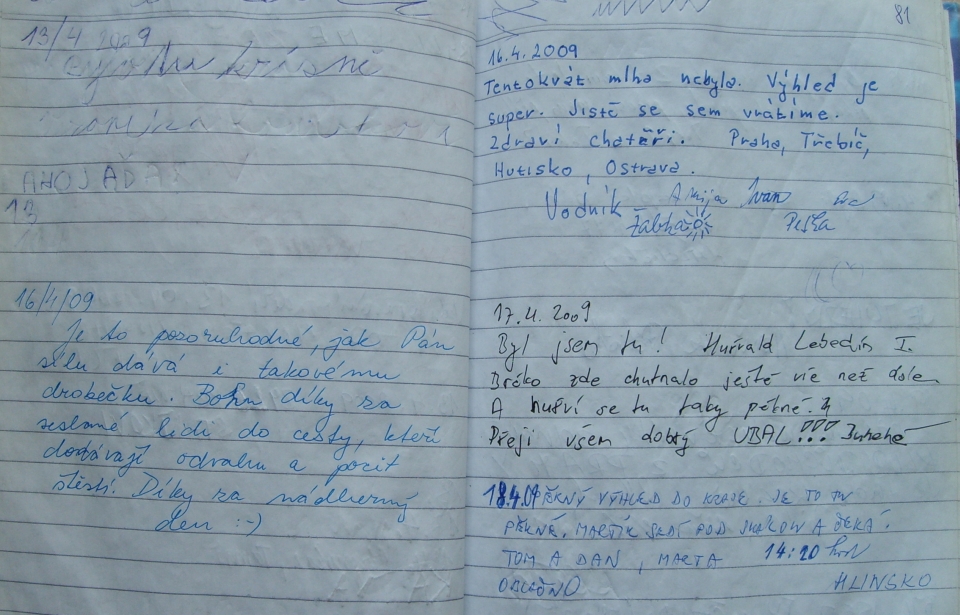 13/4 2009
krásně
AHOJ ADA
13
16/4/09
Je to pozoruhodné, jak Pán
sílu dává i takovému
drobečku. Bohu díky za
seslané lidi do cesty, kteří
dodávají odvahu a pocit
štěstí. Díky za nádherný
den :-)
81
16.4.2009
Tentokrát mlha nebyla. Výhled je
super. Jistě se sem vrátíme.
Zdraví chatěři. Praha, Třebíč,
Hutisko, Ostrava.
Vodník Ivan
Žabka
17.4.2009
Byl jsem tu! Lebedin I.
Brčko zde chutnalo ještě víc než dole.
A hulví se tu taky pěkně.
Přeji všem dobrý UBAL!!!
18.4.09 PĚKNÝ VÝHLED DO KRAJE. JE TO TU
PĚKNÉ. MARTIK SEDÍ POD SKALOU A ČEKÁ.
TOM A DAN, MARTA 14:20 hod
OBLAČNO HLINSKO